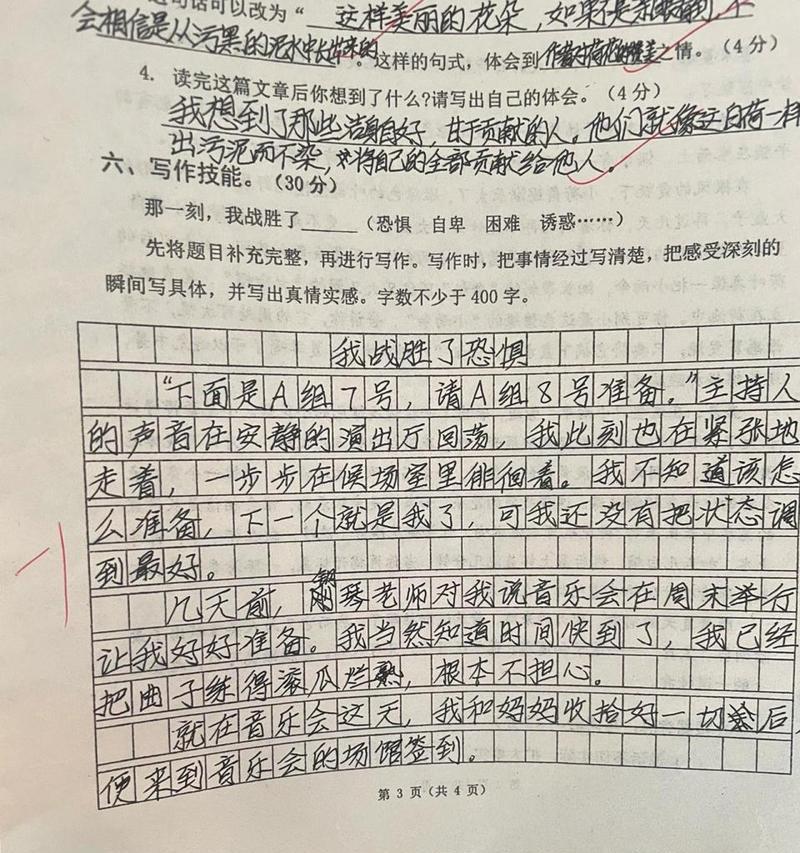 这句话可以改为“这样美丽的花朵，如果不是亲眼看到，不
会相信是从污黑的泥水中长出来的。这样的句式，体会到作者对荷花的赞美之情。（4分）
4. 读完这篇文章后你想到了什么?请写出自己的体会。（4分）
我想到了那些洁身自好，甘于贡献的人。他们就像这白荷一样
出污泥而不染，将自己的全部贡献给他人。
六、写作技能。（30分）
那一刻，我战胜了_____（恐惧 自卑 困难 诱惑……）
先将题目补充完整，再进行写作。写作时，把事情经过写清楚，把感受深刻的
瞬间写具体，并写出真情实感。字数不少于400字。
我战胜了恐惧
“下面是A组7号，请A组8号准备。”主持人
的声音在安静的演出厅回荡。我此刻也在紧张地
走着，一步步在候场室里徘徊着。我不知道该怎
么准备，下一个就是我了，可我还没有把状态调
到最好。
几天前，钢琴老师对我说音乐会在周末举行
让我好好准备。我当然知道时间快到了，我已经
把曲子练得滚瓜烂熟，根本不担心。
就在音乐会这天，我和妈妈收拾好一切后，
便来到音乐会的场馆签到。
第 3 页（共 4 页）